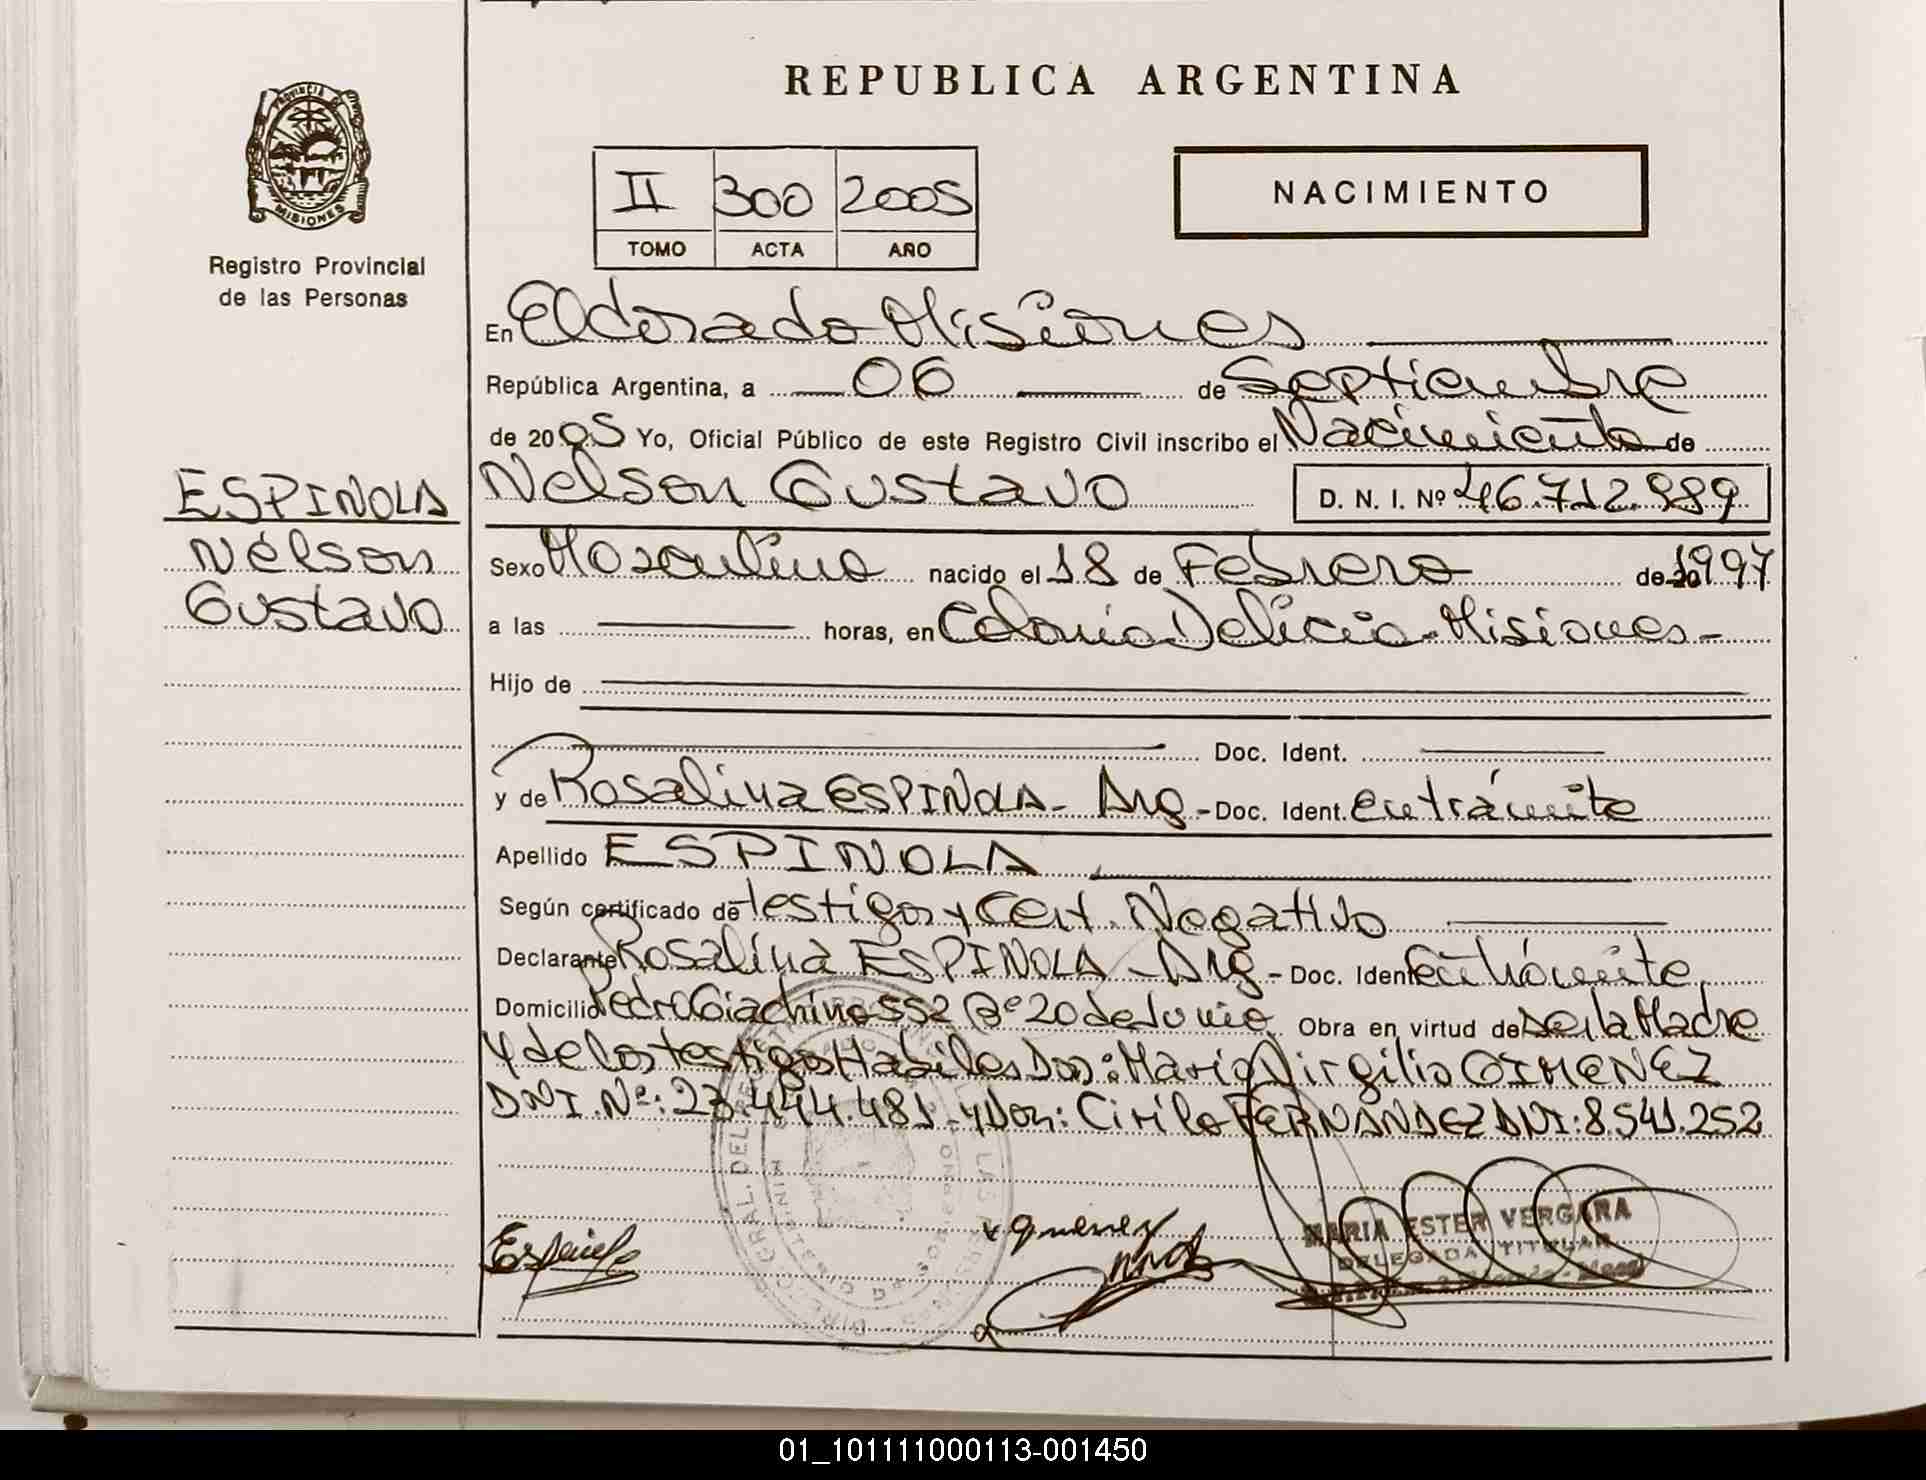 REPUBLICA ARGENTINA
PROVINCIA DE
MISIONES
Registro Provincial
de las Personas
II 300 2005
TOMO ACTA AÑO
NACIMIENTO
En Eldorado Misiones
República Argentina, a 06 de Septiembre
de 2005 Yo, Oficial Público de este Registro Civil inscribo el Nacimiento de
Nelson Gustavo D. N. I. Nº 46.712.989
ESPINOLA
Nélson
Gustavo
Sexo Masculino nacido el 18 de Febrero de 1997
a las horas, en Colonia Delicia - Misiones -
Hijo de
Doc. Ident.
y de Rosalina ESPINOLA - Arg - Doc. Ident. en trámite
Apellido ESPINOLA
Según certificado de testigos y Cert. Negativo
Declarante Rosalina ESPINOLA - Arg - Doc. Ident. en trámite
Domicilio Pedro Giachino 552 Bº 20 de Junio Obra en virtud de ser la Madre
y de los testigos Habiles Don: Mario Virgilio GIMENEZ
DNI. Nº: 23.444.481 - y Don: Cirilo FERNANDEZ DNI: 8.541.252
MARIA ESTER VERGARA
DELEGADA TITULAR
01_101111000113-001450